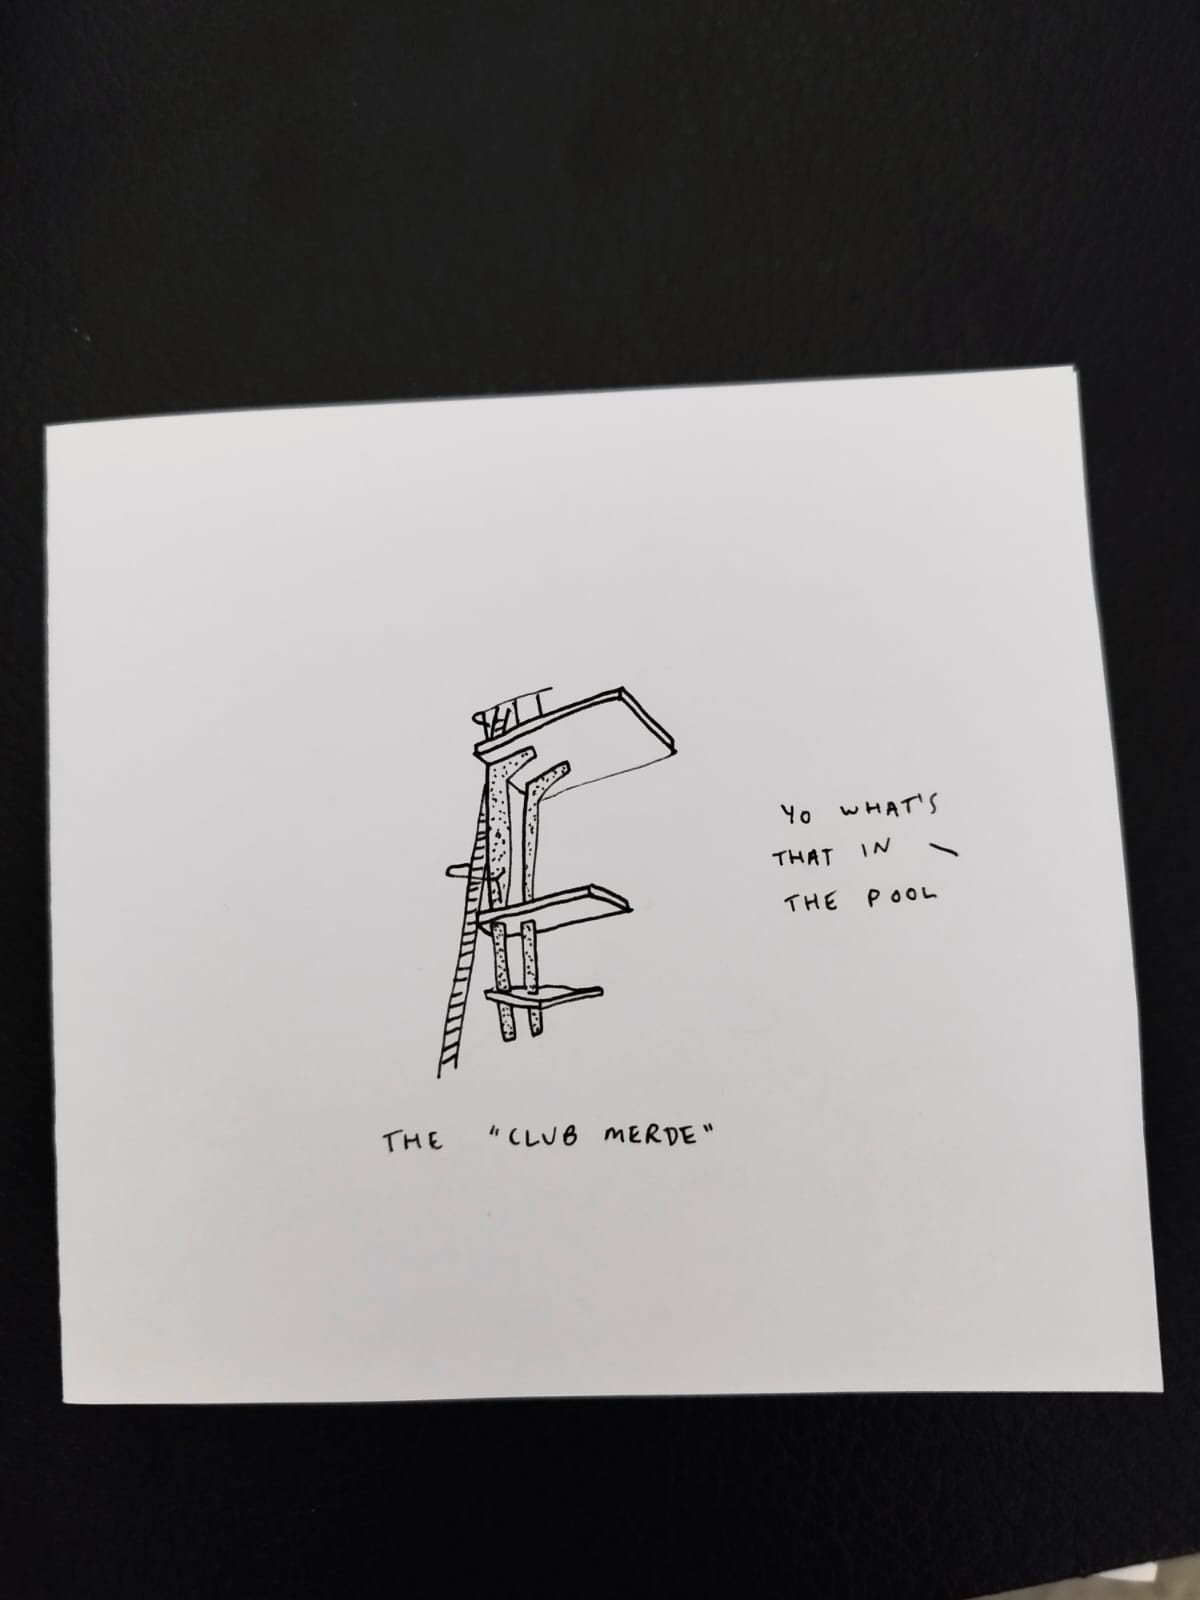 YO WHAT'S
THAT IN
THE POOL
THE "CLUB MERDE"